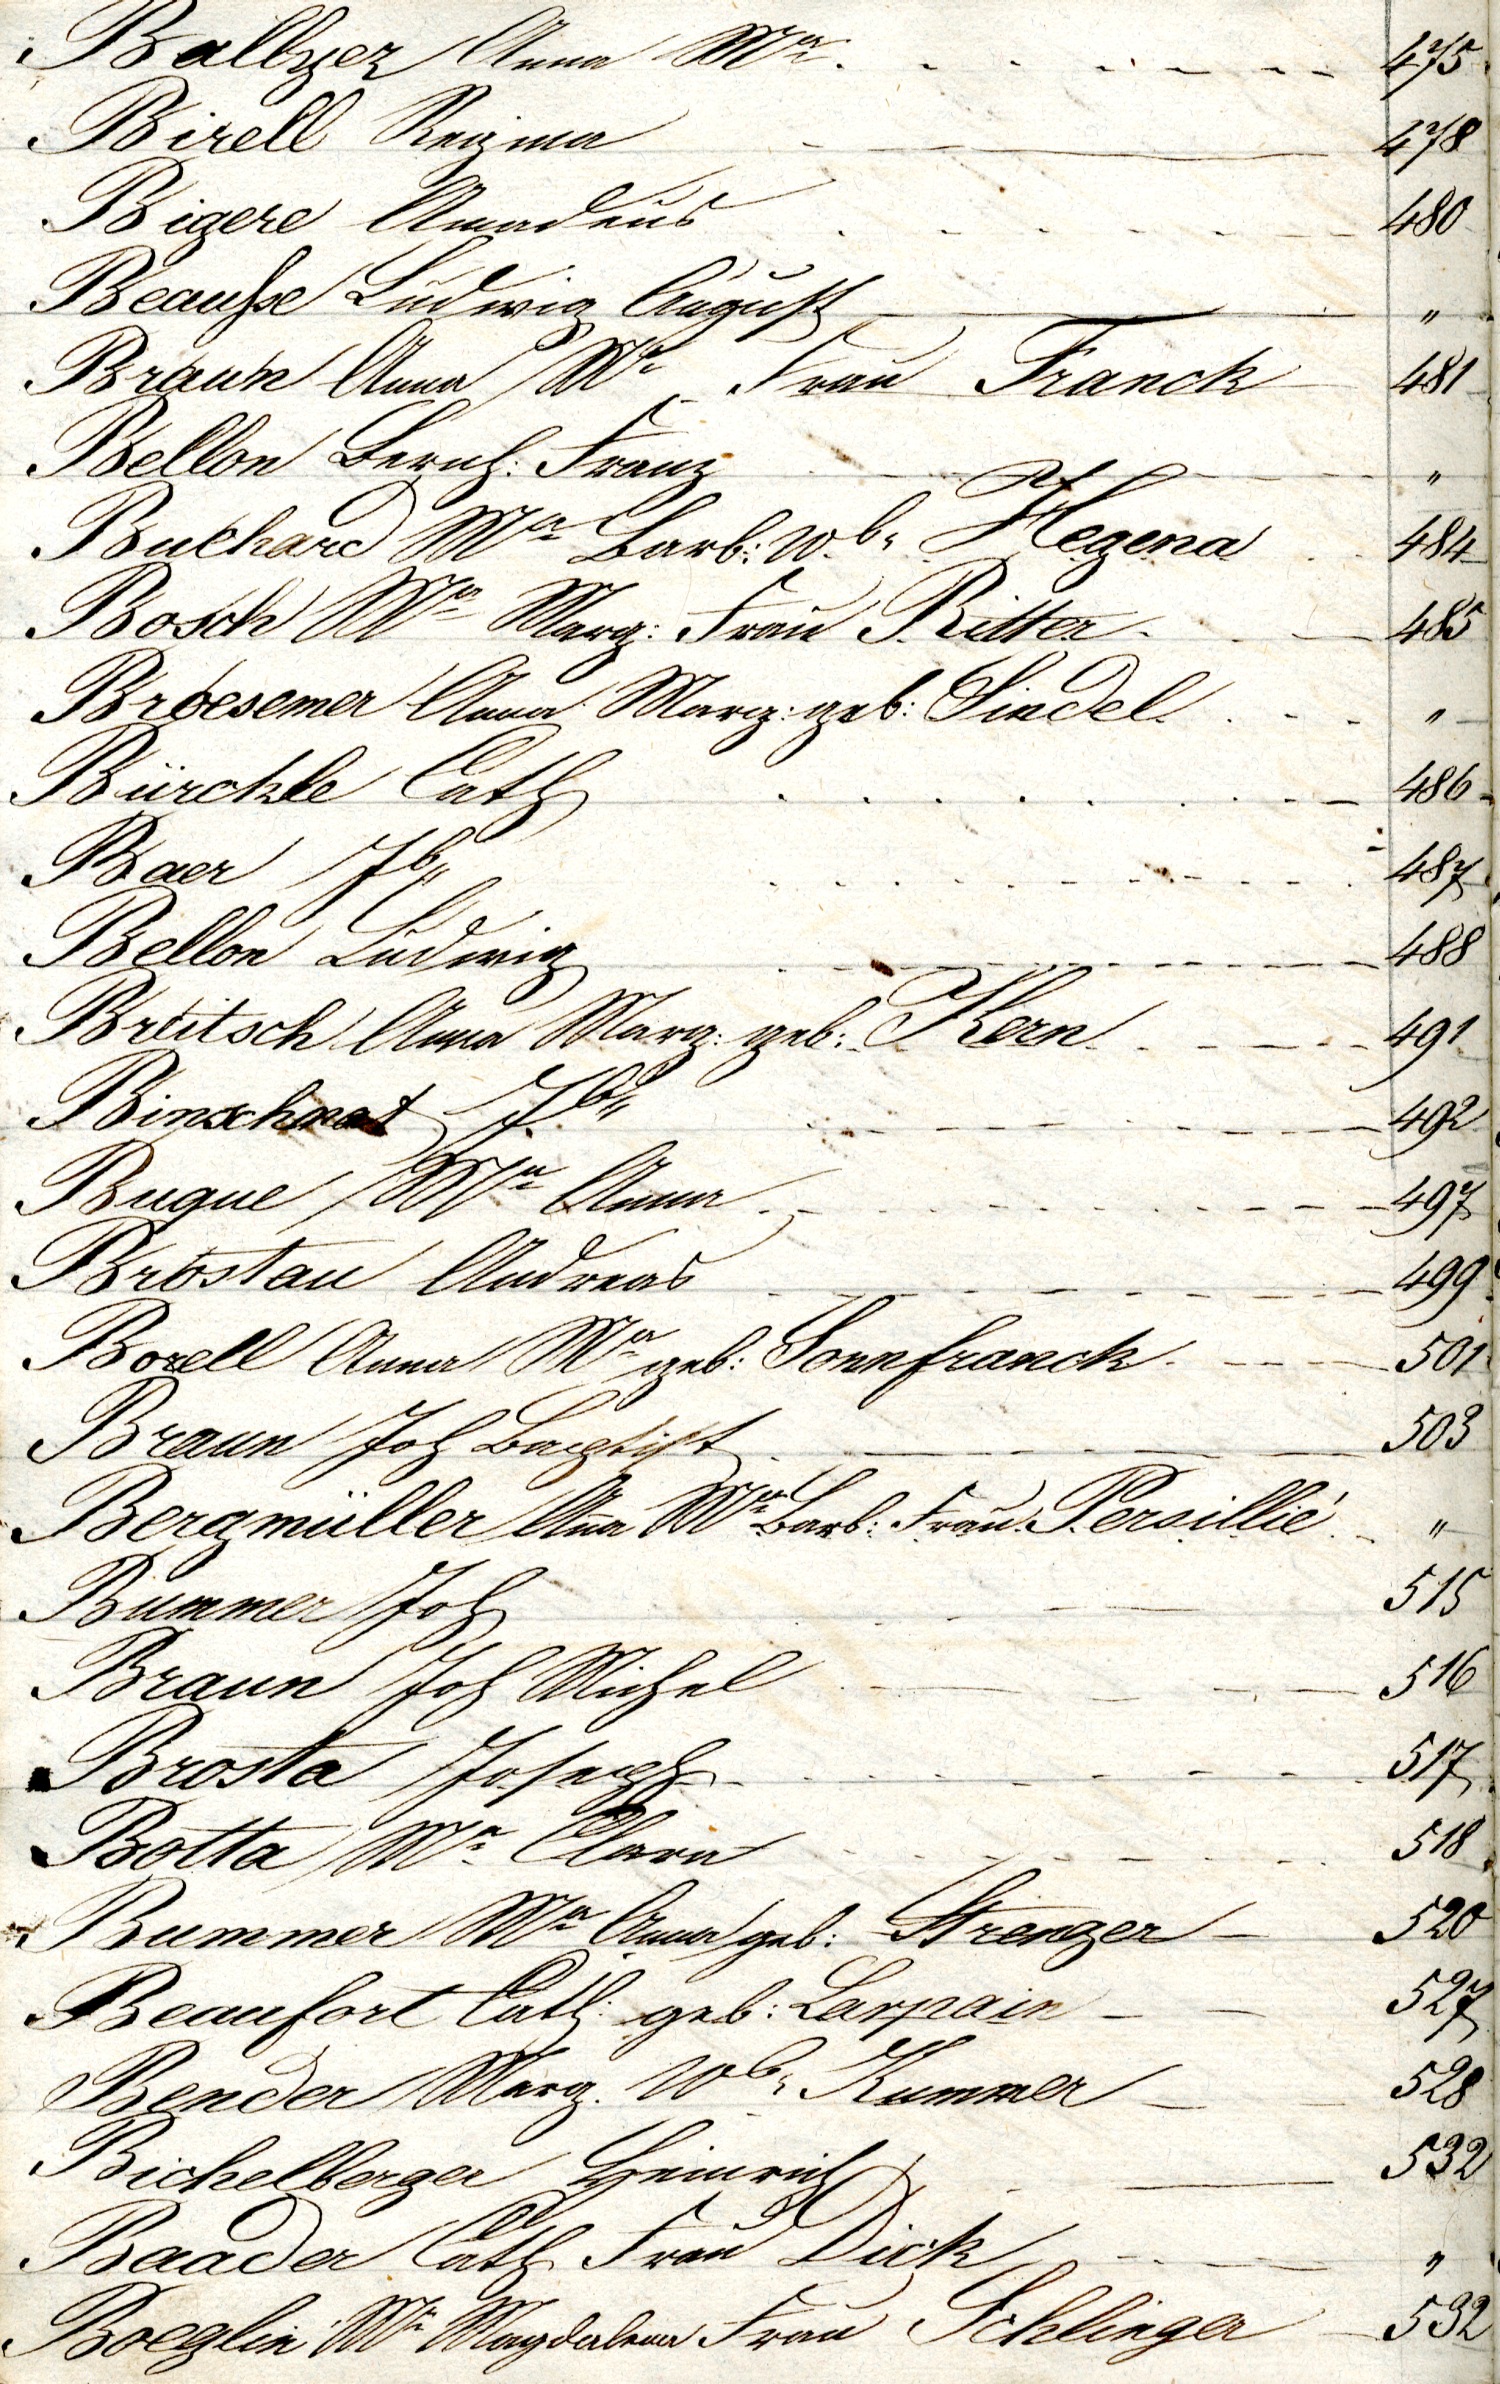 Baltzer Anna Mᵃ. 475
Birell Regina 478
Bigere Amadeus 480
Beauſse Ludwig August "
Braun Anna Mᵃ Frau Franck 481
Bellon Bernh: Franz "
Buchard Mᵃ Barb: Wb. Hegena 484
Bosch Mᵃ Marg: Frau Ritter 485
Broesemer Anna Marg: geb: Siedel "
Bürckle Cath 486
Baer Jb 487
Bellon Ludwig 488
Breitsch Anna Marg: geb: Kern 491
Jb 492
Bugue Mᵃ Anna 497
Brostau Andreas 499
Borell Anna Mᵃ geb: Sonnfranck 501
Braun Joh Baptist 503
Bergmüller Ana Mᵃ Barb: Frau Persillié "
Bummer Joh 515
Braun Joh Michel 516
Brosta Joseph 517
Botta Mᵃ Clara 518
Bummer Mᵃ Anna geb: Strenger 520
Beaufort Cath: geb: Larpain 527
Bender Marg. Wb. Kummer 528
Bichelberger Heinrich 532
Baader Cath Frau Dick "
Boeglin Mᵃ Magdalena Frau Schlinger 532